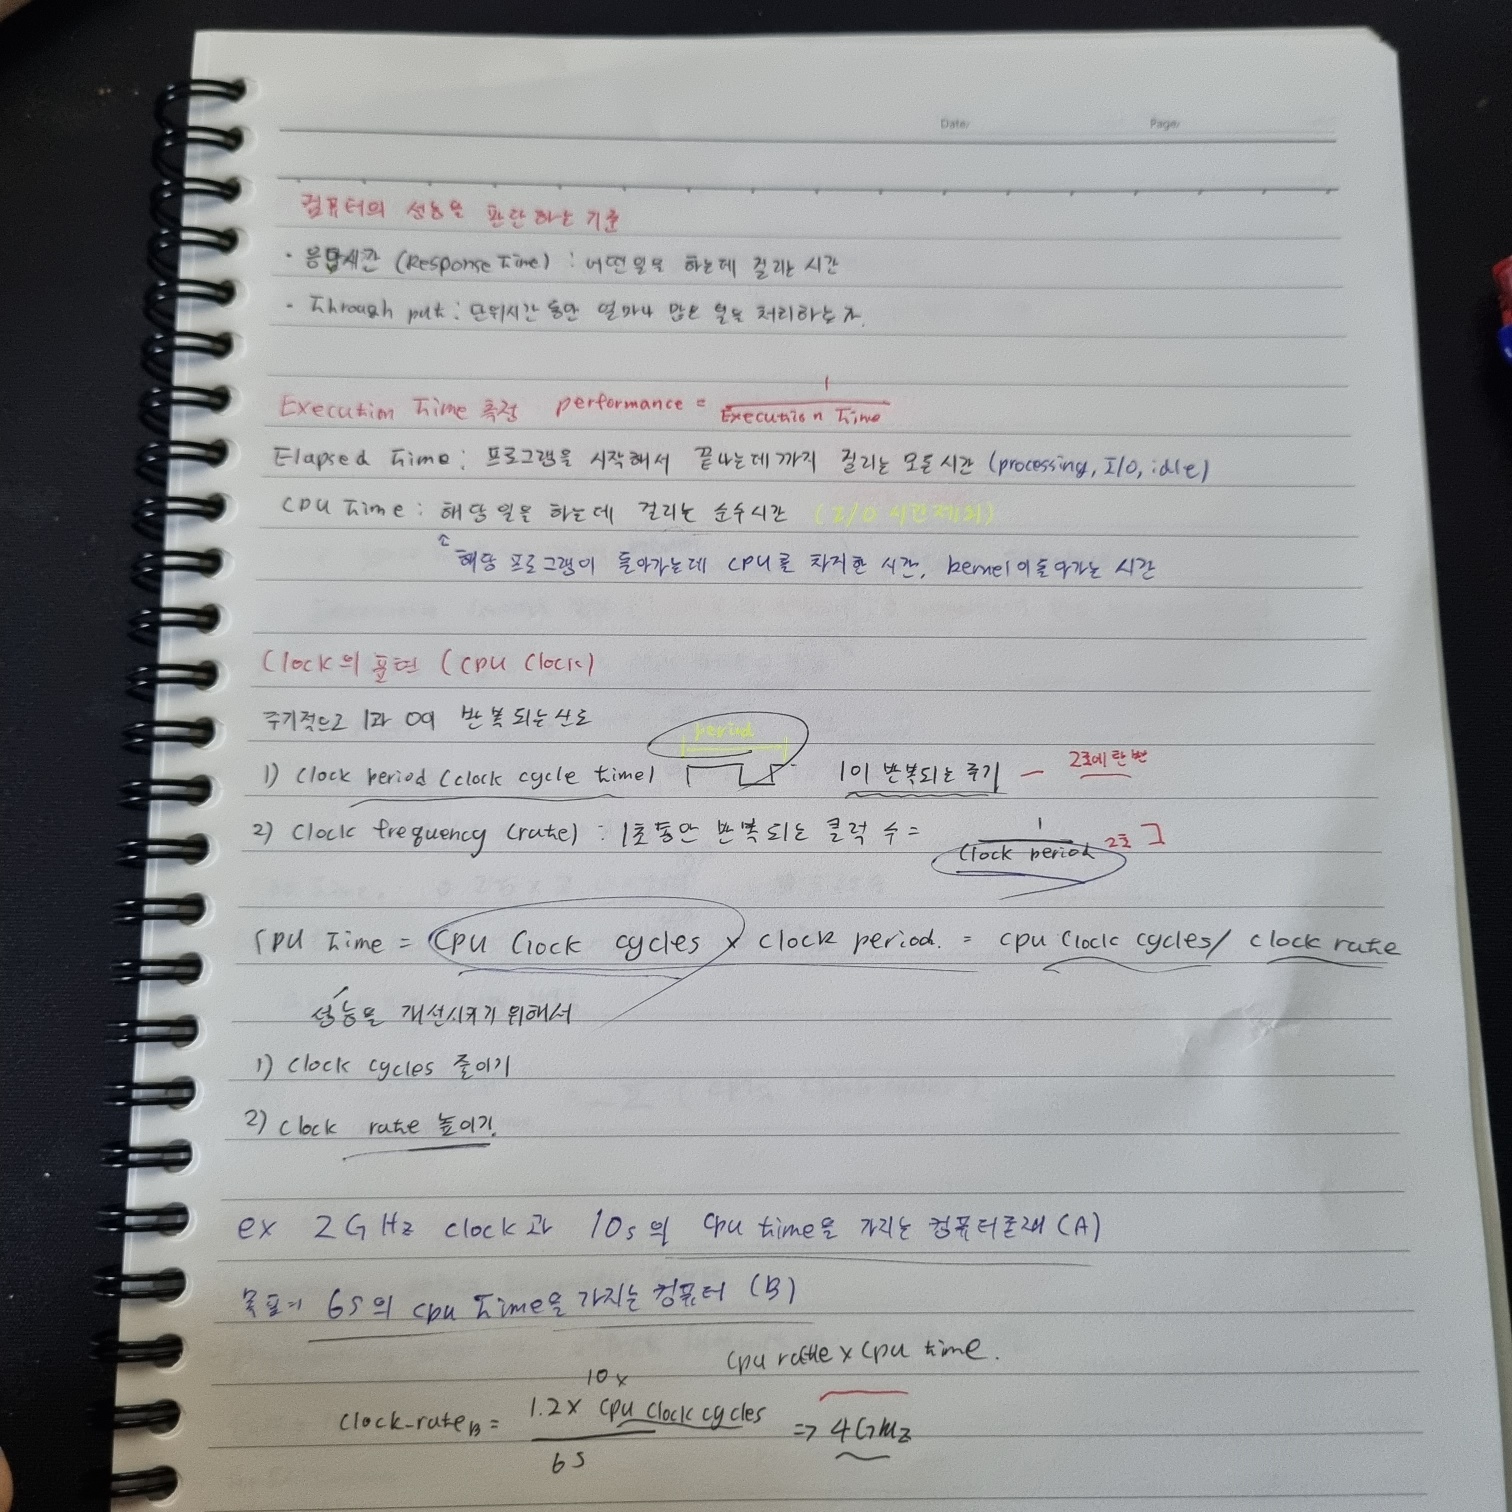 Date
Page
컴퓨터의 성능을 판단하는 기준
· 응답시간 (Response time) : 어떤일을 하는데 걸리는 시간
· Through put : 단위시간 동안 얼마나 많은 일을 처리하는가.
Execution time 측정 performance = 1 / Execution time
Elapsed time : 프로그램을 시작해서 끝나는데까지 걸리는 모든시간 (processing, I/O, idle)
CPU time : 해당 일을 하는데 걸리는 순수시간 (I/O 시간제외)
해당 프로그램이 돌아가는데 CPU를 차지한 시간, kernel이 돌아가는 시간
Clock의 표현 (CPU Clock)
주기적으로 1과 0이 반복되는 신호
period
1) Clock period (clock cycle time) 1이 반복되는 주기 - 2초에 한번
2) Clock frequency (rate) : 1초동안 반복되는 클럭 수 = 1 / Clock period 2초
CPU time = CPU Clock cycles x clock period. = CPU Clock cycles / clock rate
성능을 개선시키기 위해서
1) Clock cycles 줄이기
2) Clock rate 높이기.
ex 2GHz clock과 10s의 CPU time을 가지는 컴퓨터존재 (A)
목표가 6s의 CPU time을 가지는 컴퓨터 (B)
CPU rate x CPU time.
10 x
clock-rate B = 1.2 x CPU clock cycles / 6s => 4GHz